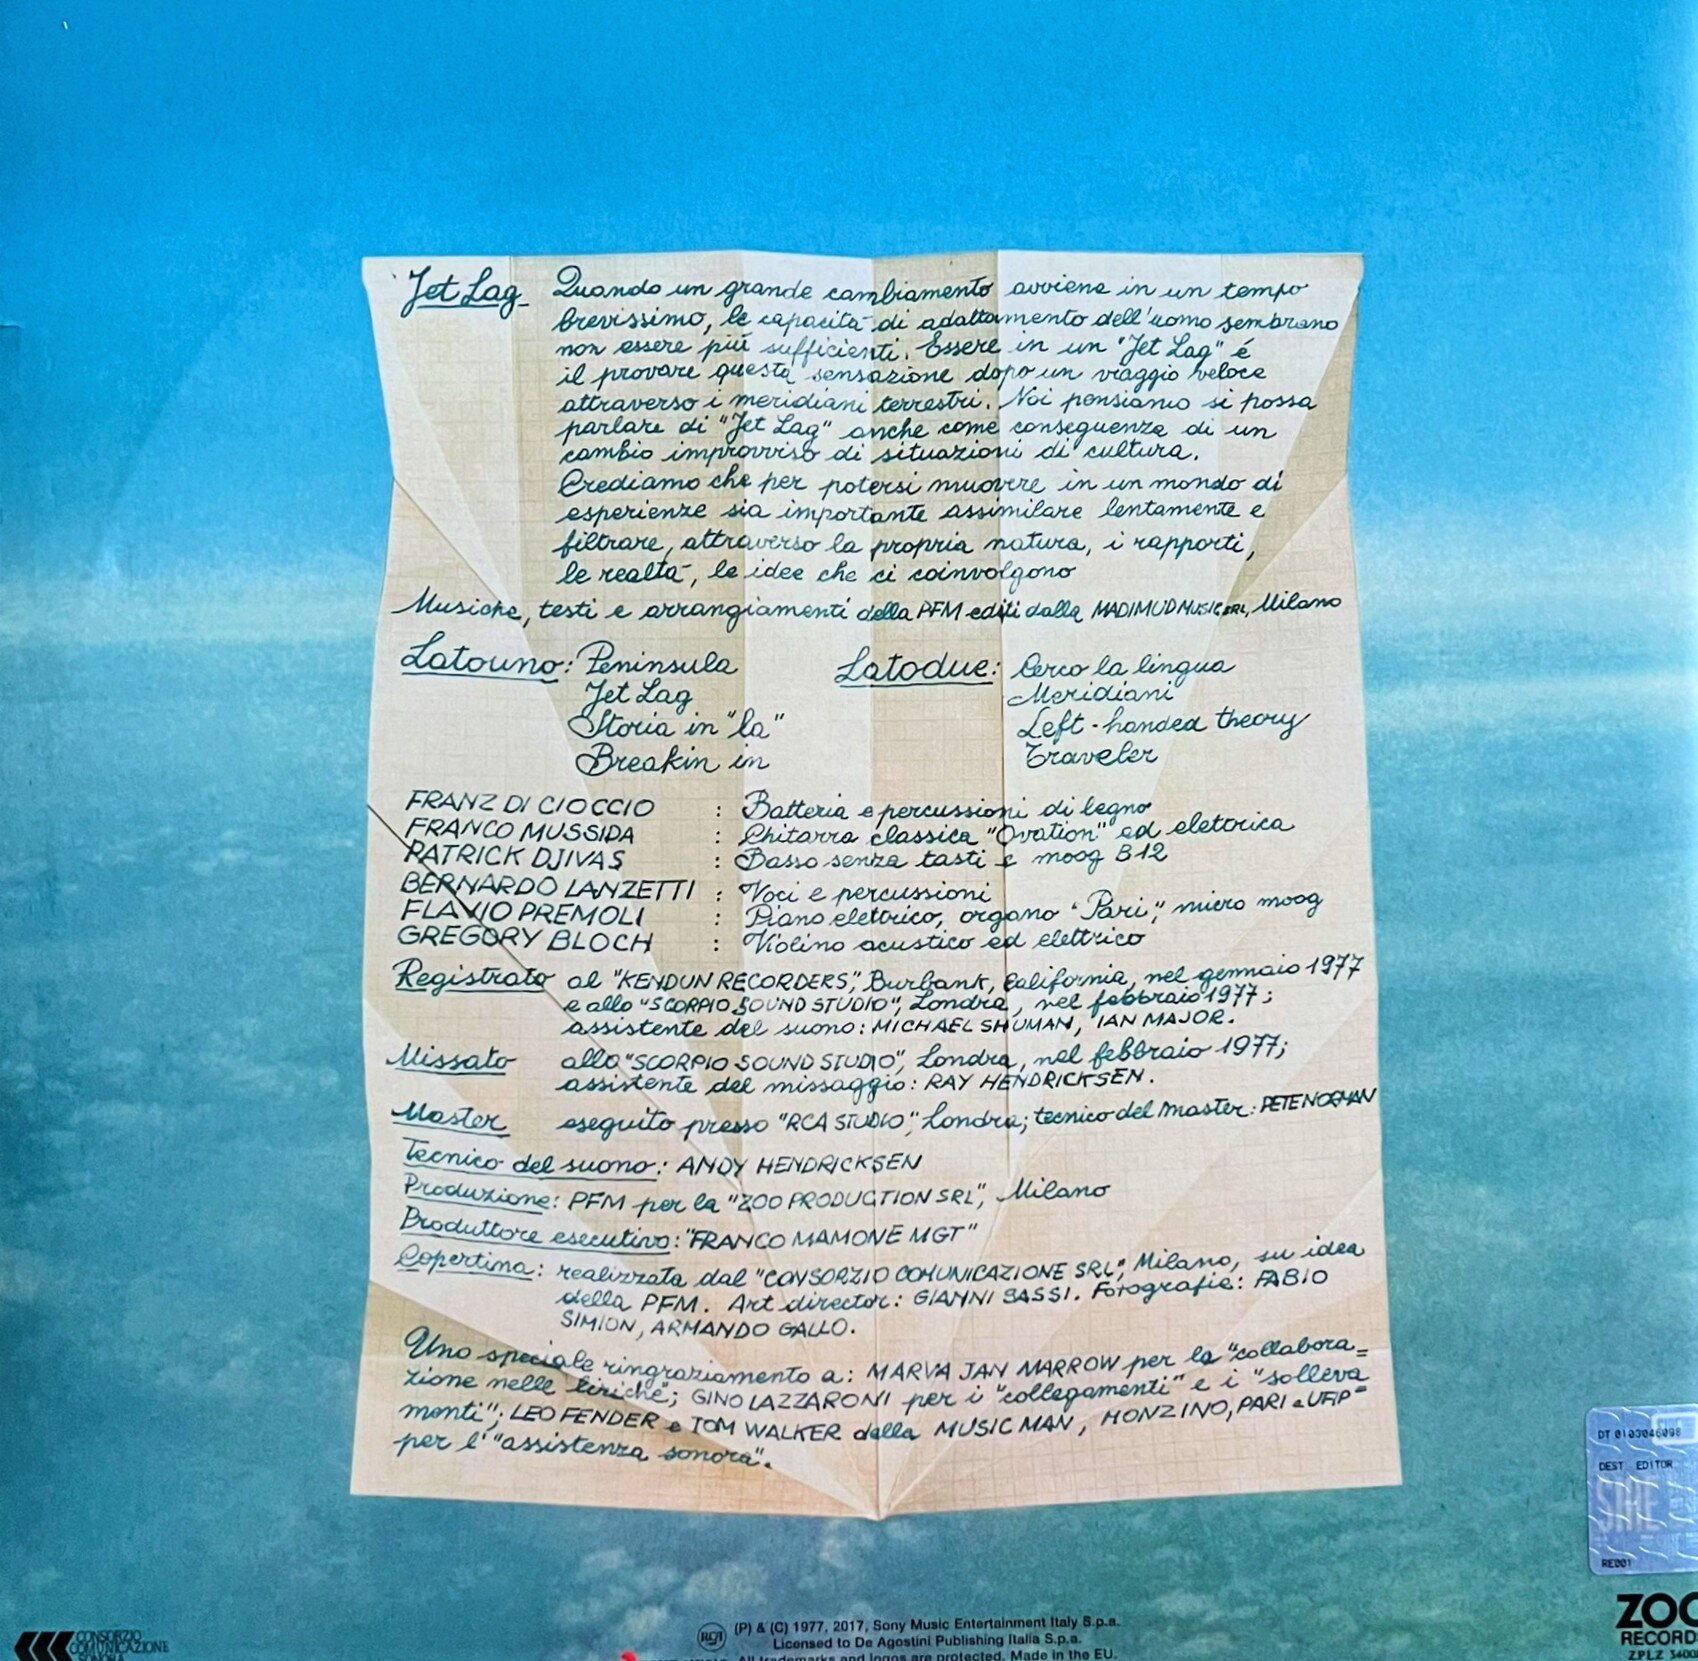 Jet Lag Quando un grande cambiamento avviene in un tempo
brevissimo, le capacità di adattamento dell'uomo sembrano
non essere più sufficienti. Essere in un "Jet Lag" è
il provare questa sensazione dopo un viaggio veloce
attraverso i meridiani terrestri. Noi pensiamo si possa
parlare di "Jet Lag" anche come conseguenza di un
cambio improvviso di situazioni di cultura.
Crediamo che per potersi muovere in un mondo di
esperienze sia importante assimilare lentamente e
filtrare, attraverso la propria natura, i rapporti,
le realtà, le idee che ci coinvolgono
Musiche, testi e arrangiamenti della PFM editi dalla MADIMUD MUSIC SRL, Milano
Latouno: Peninsula
Jet Lag
Storia in "la"
Breakin in
Latodue: Cerco la lingua
Meridiani
Left-handed theory
Traveler
FRANZ DI CIOCCIO : Batteria e percussioni di legno
FRANCO MUSSIDA : Chitarra classica "Ovation" ed elettrica
PATRICK DJIVAS : Basso senza tasti e moog B12
BERNARDO LANZETTI : Voci e percussioni
FLAVIO PREMOLI : Piano elettrico, organo "Pari", micro moog
GREGORY BLOCH : Violino acustico ed elettrico
Registrato al "KENDUN RECORDERS", Burbank, California, nel gennaio 1977
e allo "SCORPIO SOUND STUDIO", Londra, nel febbraio 1977;
assistente del suono: MICHAEL SHUMAN, IAN MAJOR.
Missato allo "SCORPIO SOUND STUDIO", Londra, nel febbraio 1977;
assistente del missaggio: RAY HENDRICKSEN.
Master eseguito presso "RCA STUDIO", Londra; tecnico del master: PETE NORMAN
Tecnico del suono: ANDY HENDRICKSEN
Produzione: PFM per la "ZOO PRODUCTION SRL", Milano
Produttore esecutivo: "FRANCO MAMONE MGT"
Copertina: realizzata dal "CONSORZIO COMUNICAZIONE SRL", Milano, su idea
della PFM. Art director: GIANNI SASSI. Fotografie: FABIO
SIMION, ARMANDO GALLO.
Uno speciale ringraziamento a: MARVA JAN MARROW per la "collabora=
zione nelle liriche"; GINO LAZZARONI per i "collegamenti" e i "solleva
menti"; LEO FENDER e TOM WALKER della MUSIC MAN, MONZINO, PARI e UFIP
per l'"assistenza sonora".
DT 0103046098
DEST EDITOR
SIAE
RE001
CONSORZIO
COMUNICAZIONE
SONORA
RCA
(P) & (C) 1977, 2017, Sony Music Entertainment Italy S.p.a.
Licensed to De Agostini Publishing Italia S.p.a.
All trademarks and logos are protected. Made in the EU.
ZOO
RECORDS
ZPLZ